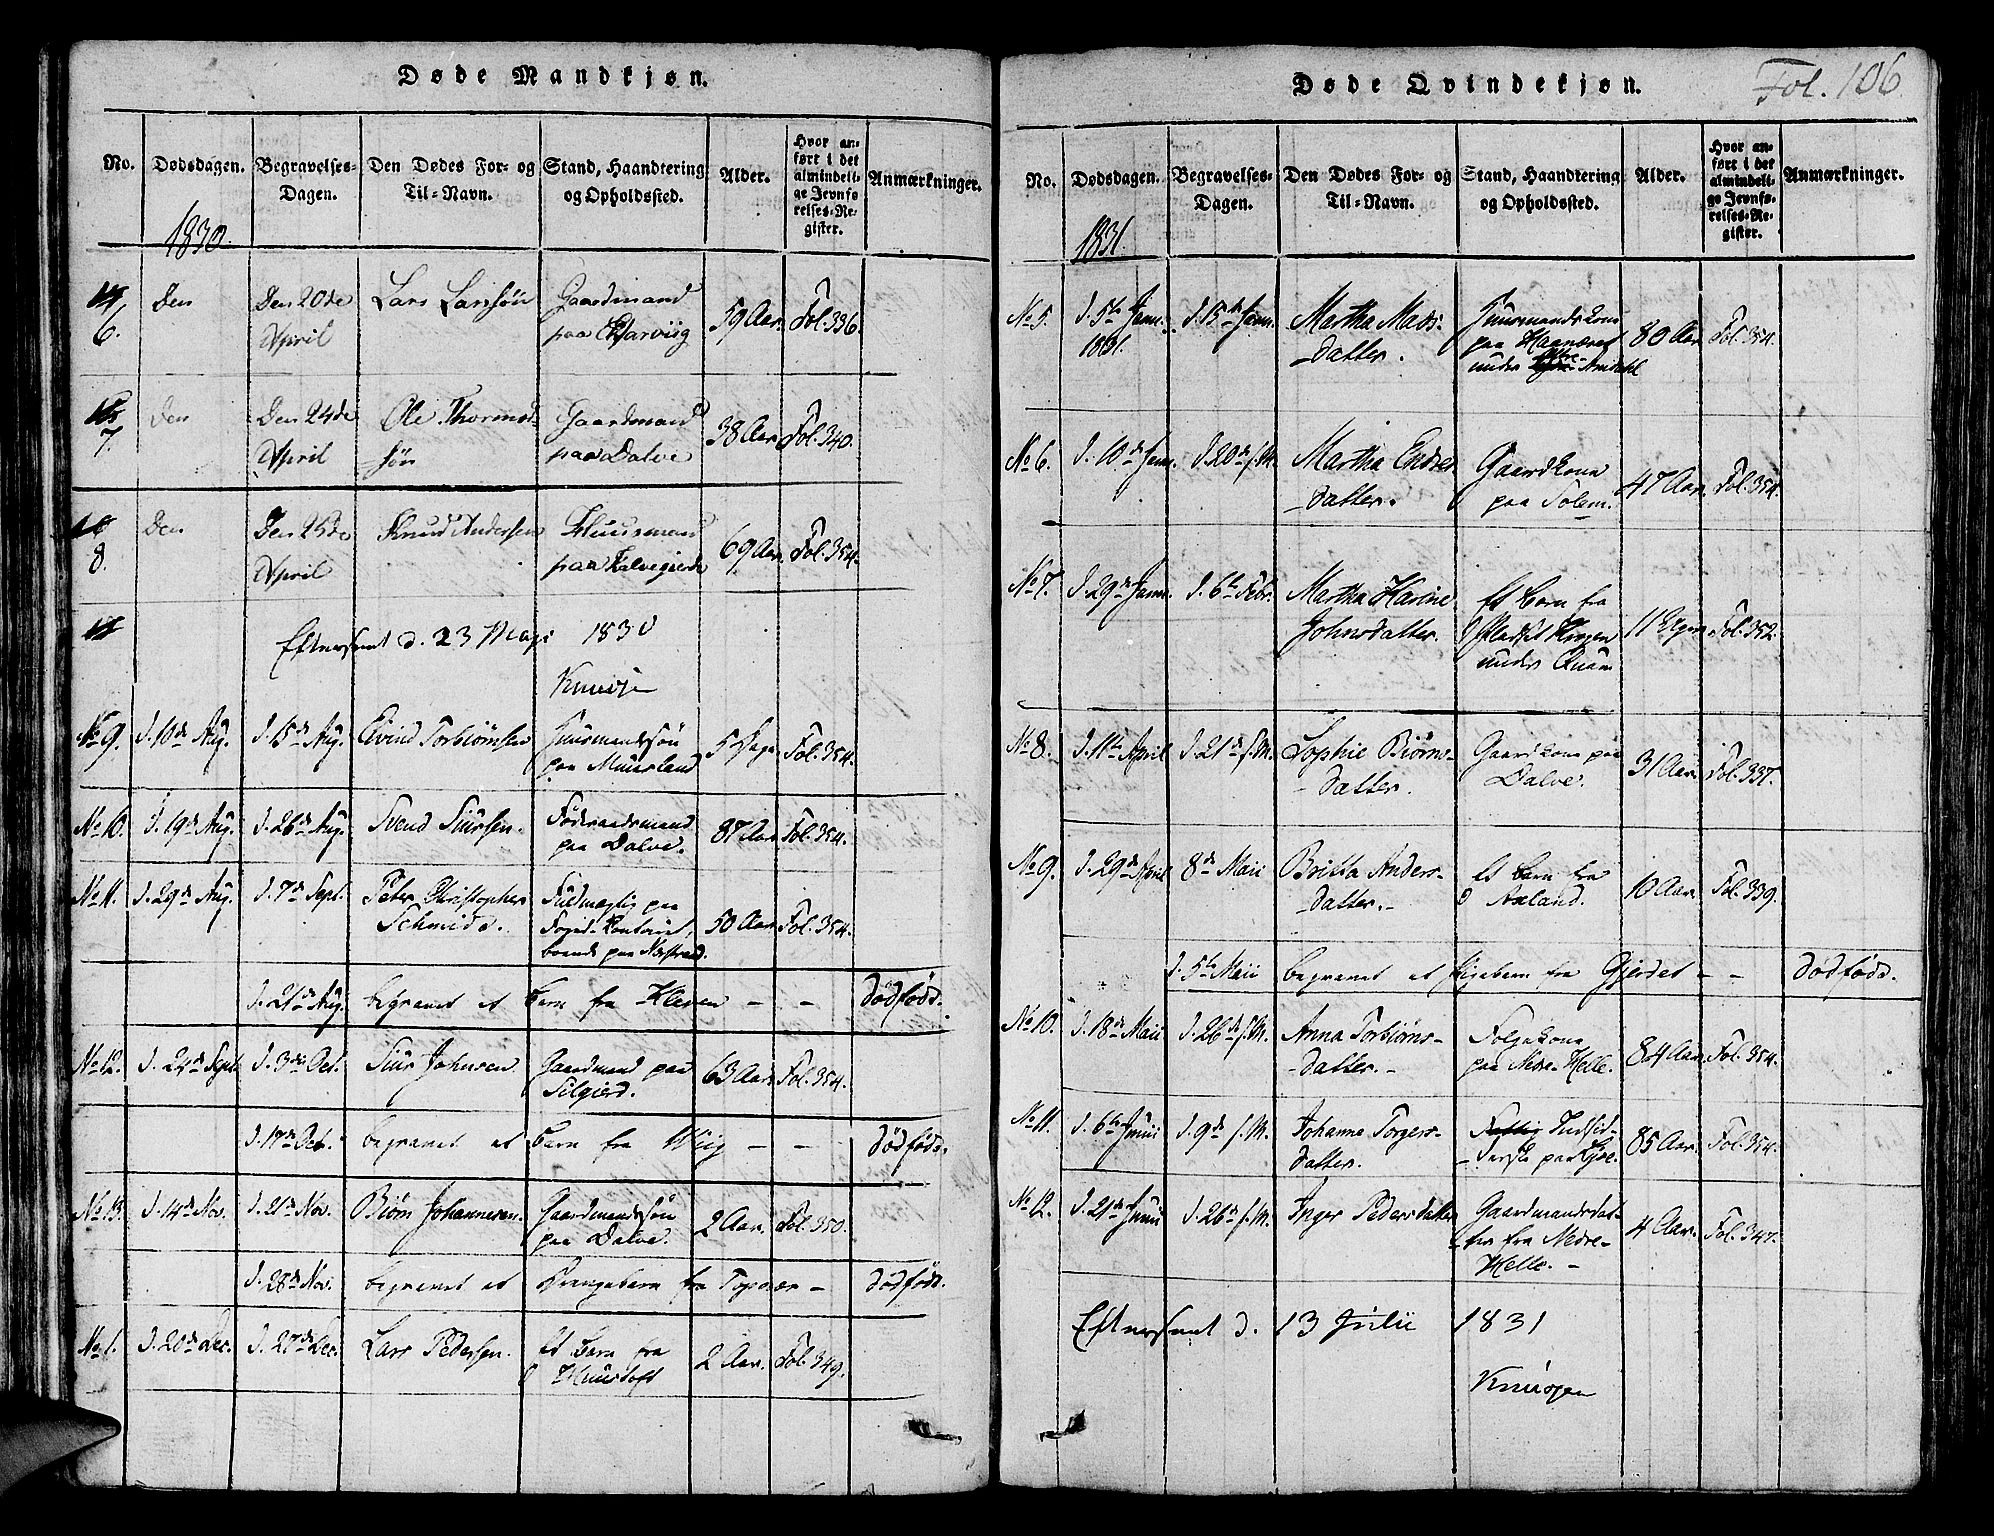 Døde Mandkjøn.
No. Dødsdagen. Begravelses-Dagen. Den Dødes For- og Til-Navn. Stand, Haandtering og Opholdssted. Alder. Hvor anført i det almindelige Jevnførelses-Register. Anmærkninger.
1830
6. Den Den 20de April Lars Larssøn Gaardmand paa 59 Aar. Fol. 336.
7. Den Den 24de April Ole Thormodsøn Gaardmand paa Dalve 38 Aar. Fol. 340.
8. Den Den 25de April Knud Andersen Huusmand paa 69 Aar. Fol. 354.
Efterseet d. 23 Maji 1830
No 9. d. 10de Aug. d. 15de Aug. Eivind Torbiörnsen Huusmandssön paa Muusland 5 Dage Fol. 354.
No 10. d. 19de Aug. d. 26de Aug. Svend Siursen. Föderaadsmand paa Dalve. 87 Aar Fol. 354.
No 11. d. 29de Aug. d. 7de Sept. Peter Christopher Schmidt. Fuldmægtig paa Foged-Kontoiret, boende paa Nærstrand. 50 Aar. Fol. 354.
d. 21de Aug. begravet et Barn fra Kleven - - dödföds.
No 12. d. 24de Sept. d. 3die Oct. Siur Johnsen Gaardmand paa Selgierd. 63 Aar. Fol. 354.
d. 17de Oct. begravet et Barn fra Wiig - - dödföds.
No 13. d. 14de Nov. d. 21de Nov. Biörn Johannesen. Gaardmandssön paa Dalve. 2 Aar. Fol. 350.
d. 28de Nov. begravet et Drengebarn fra Topnær - dödföds.
No 1. d. 20de Dec. d. 27de Dec. Lars Pedersen. et Barn fra Huustoft 2 Aar. Fol. 349.
Døde Qvindekjøn.
Fol. 106
No. Dødsdagen. Begravelses-Dagen. Den Dødes For- og Til-Navn. Stand, Haandtering og Opholdssted. Alder. Hvor anført i det almindelige Jevnførelses-Register. Anmærkninger.
1831.
No 5. d. 5te Janr. 1831. d. 15de Janr. Martha Mads-datter. Huusmandskone paa under Amdahl 80 Aar Fol. 354.
No 6. d. 10de Janr. d. 20de s. M. Martha Endres-datter. Gaardkone paa Solem. 47 Aar. Fol. 354.
No 7. d. 29de Janr. d. 6te Febr. Martha Karine Johnsdatter. et Barn fra Pladset Krogen under Quam 11 Uger Fol. 352.
No 8. d. 11te April d. 21de s. M. Sophie Biörns-datter. Gaardkone paa Dalve. 31 Aar Fol. 337.
No 9. d. 29de April 8de Maii Britta Anders-datter. et Barn fra Axland. 10 Aar. Fol. 339.
d. 5te Maii begravet et Pigebarn fra Gjerdet - - dödföds.
No 10. d. 18de Maii d. 26de s. M. Anna Torbiörns-datter. Folgekone paa Nedre-Helle. 84 Aar. Fol. 354.
No 11. d. 6te Junii d. 9de s. M. Johanne Torgers-datter. Indsidderske paa 85 Aar. Fol. 354.
No 12. d. 21de Junii d. 26de s. M. Inger Pedersdatter Gaardmandsdatter fra Nedre-Helle. - 4 Aar. Fol. 347.
Efterseet d. 13 Julii 1831